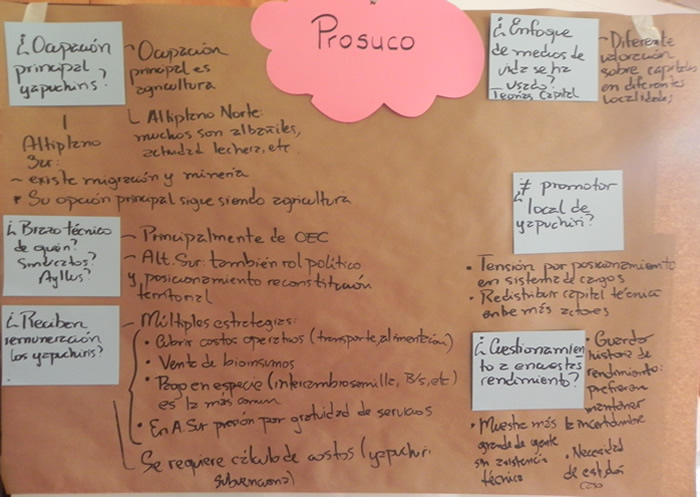 Prosuco
¿Ocupación
principal
yapuchiris?
- Ocupación
principal es
agricultura
Altiplano Norte:
muchos son albañiles,
actividad lechera, etc
Altiplano
Sur:
- existe migración y minería
• Su opción principal sigue siendo agricultura
¿Brazo técnico
de quién?
Sindicatos?
Ayllus?
- Principalmente de OEC
- Alt. Sur: también rol político
y posicionamiento reconstitución
territorial
¿Reciben
remuneración
los yapuchiris?
- Múltiples estrategias:
• Cubrir costos operativos (transporte, alimentación)
• Venta de bioinsumos
• Pago en especie (intercambio semilla, B/s, etc)
es la más común
• En A. Sur presión por gratuidad de servicios
Se requiere cálculo de costos (yapuchiri
¿Enfoque
de medios de
vida se ha
usado?
Teorías Capital
- Diferente
valoración
sobre capitales
en diferentes
localidades
≠ promotor
local de
yapuchiri?
• Tensión por posicionamiento
en sistema de cargos
• Redistribuir capital técnico
entre más actores
¿Cuestionamien
to a encuestas
rendimiento?
• Guardar
historia de
rendimiento:
prefieren
mantener
la incertidumbre
• Muestra más
grande de gente
sin asistencia
técnica
• Necesidad
de